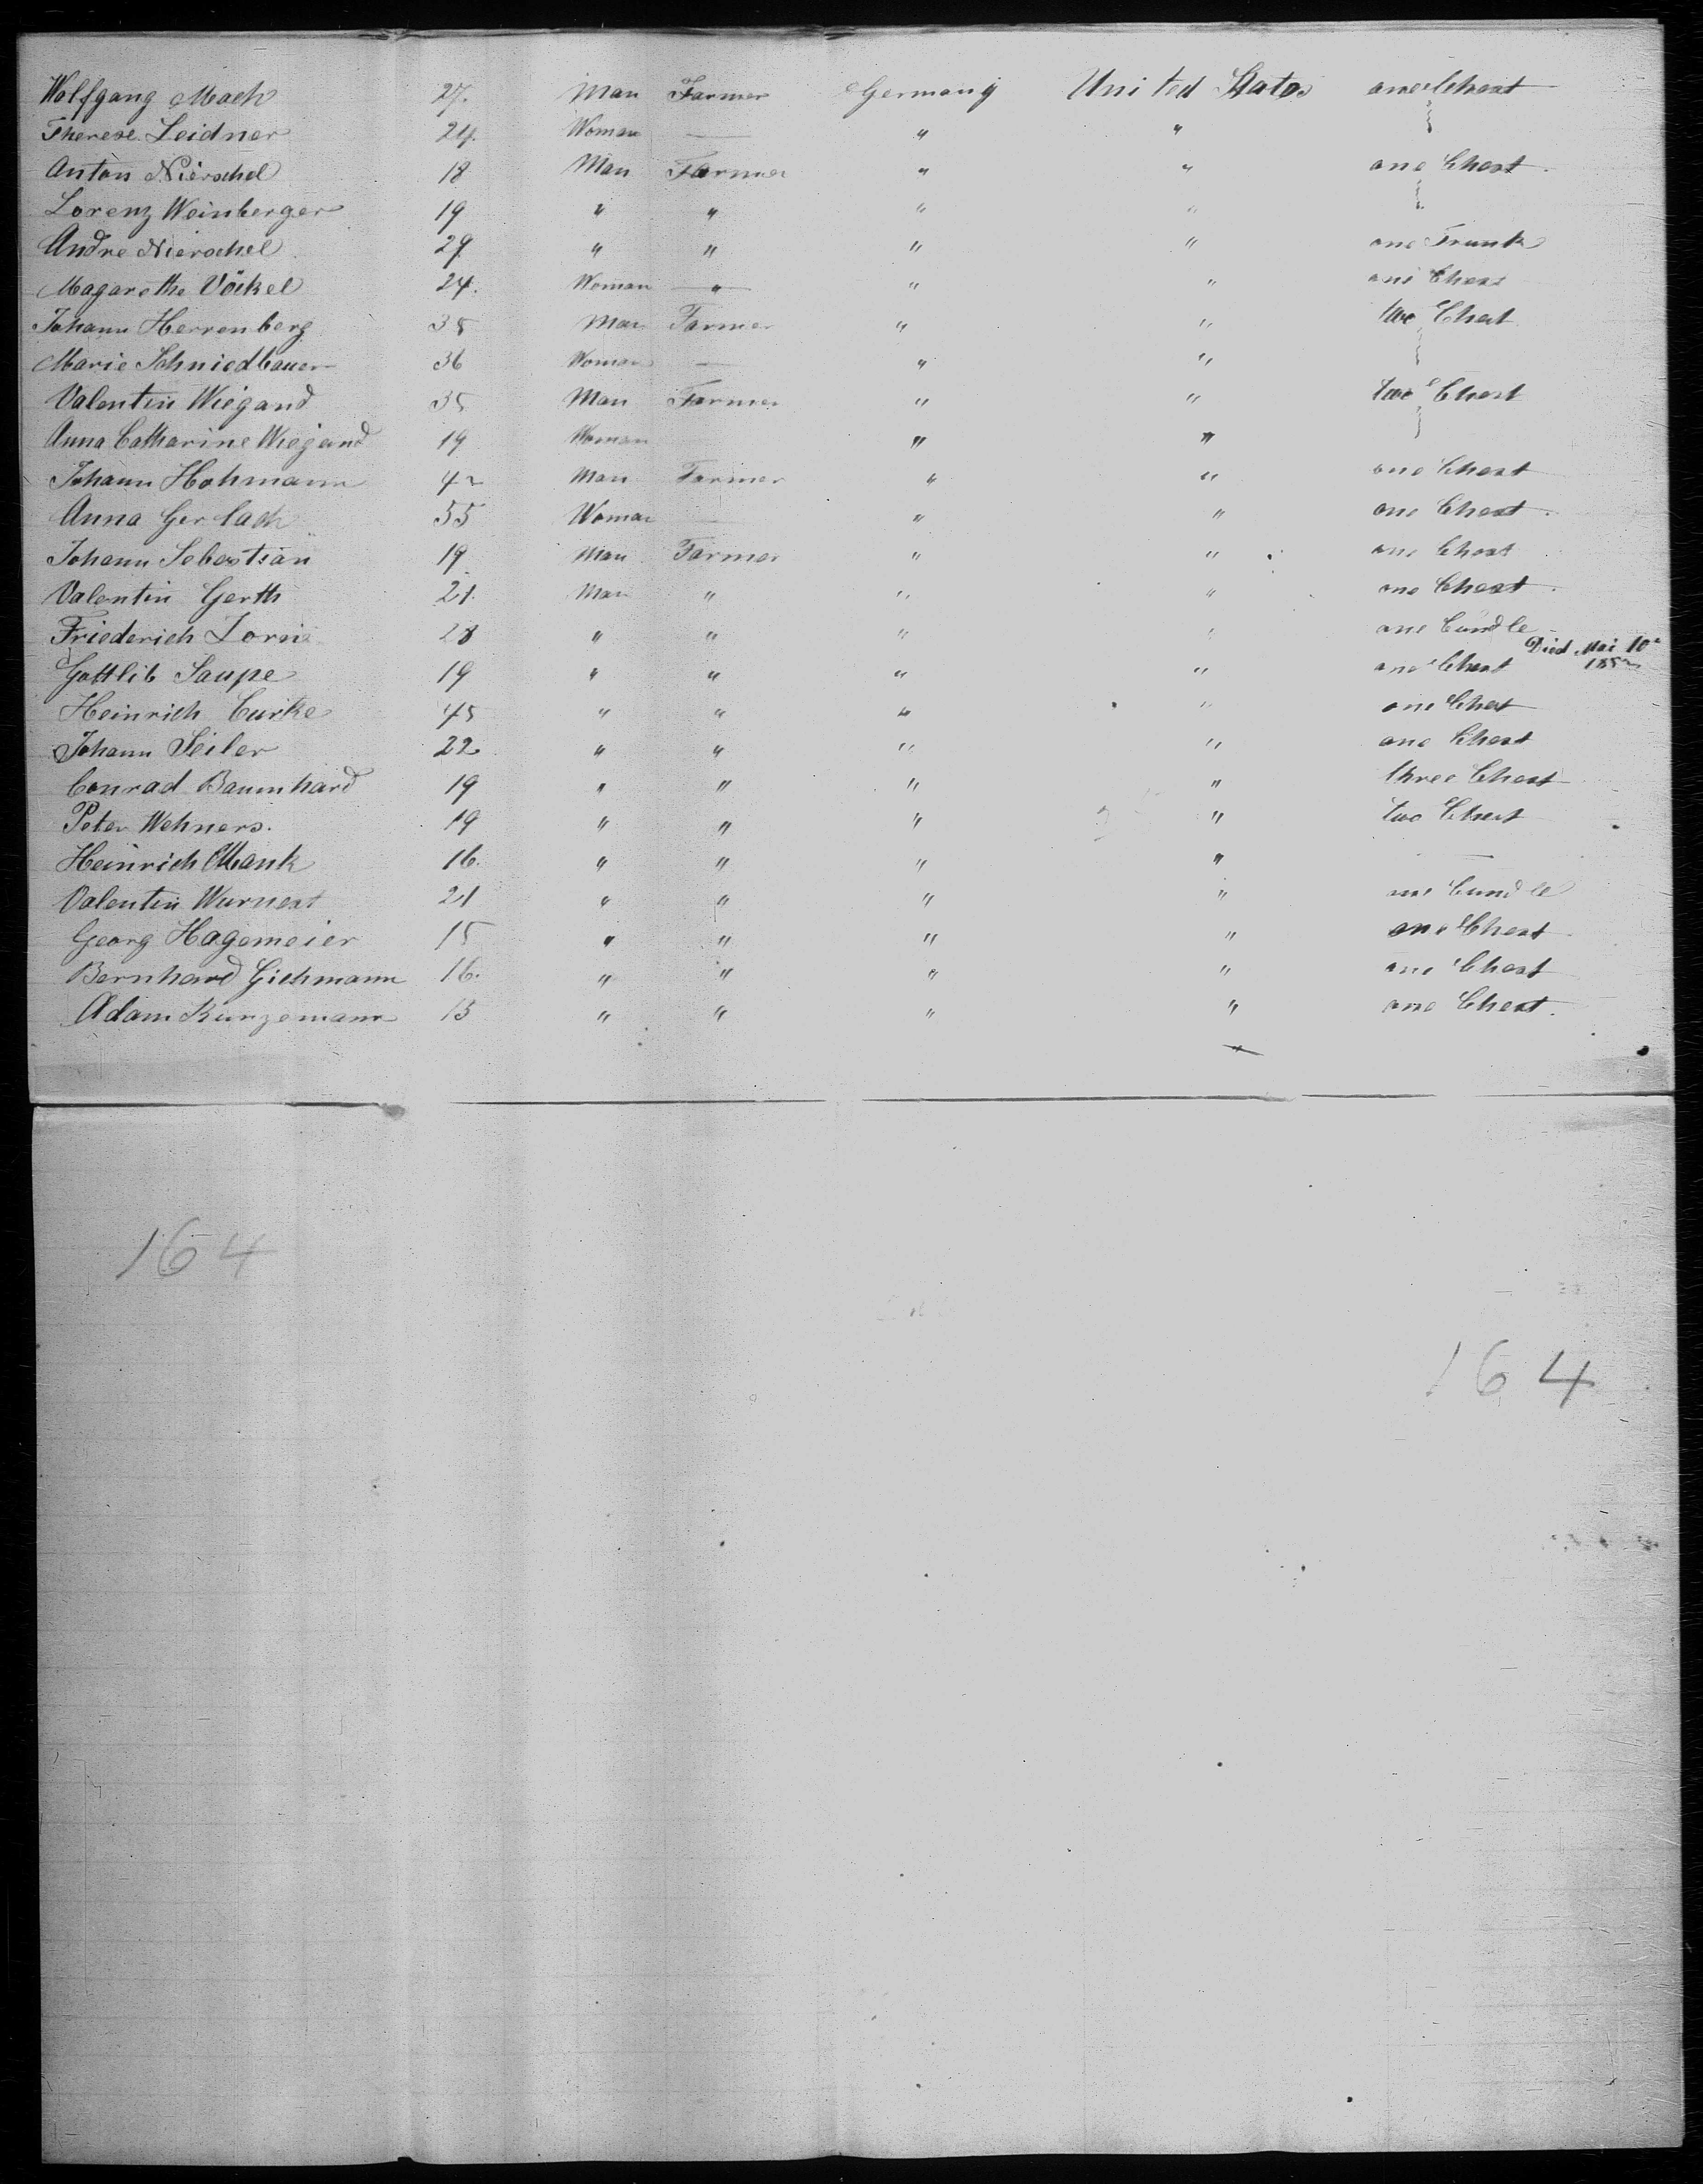 Wolfgang Mach 27. Man Farmer Germany United States one Chest
Therese Leidner 24. Woman — " "
Anton Nierschel 18 Man Farmer " " one Chest.
Lorenz Weinberger 19 " " " "
Andre Nierschel. 29 " " " " one Trunk
Magarethe Völkel 24. Woman — " " one Chest
Johann Herrenberg 35 Man Farmer " " two Chest
Marie Schniedbauer 36 Woman — " "
Valentin Wiegand 35 Man Farmer " " two Chest
Anna Catharine Wiegand 19 Woman " "
Johann Hohmann 42 Man Farmer " " one Chest
Anna Gerlach 55 Woman — " " one Chest.
Johann Sebastian 19 Man Farmer " " one Chest
Valentin Gerth 21. Man " " " one Chest.
Friederich 28 " " " " one bundle
Died Mai 10
Gottlib Saupe 19 " " " " one Chest 1852
Heinrich Curke 45 " " " " one Chest
Johann Seiler 22 " " " " one Chest
Conrad Baumhard 19 " " " " three Chest
Peter Wehners. 19 " " " " two Chest
Heinrich Mank 16. " " " " —
Valentin Wurnest 21 " " " " one bundle
Georg Hagemeier 15 " " " " one Chest
Bernhard Gichmann 16. " " " " one Chest
Adam Kunzemann 15 " " " " one Chest.
164
164